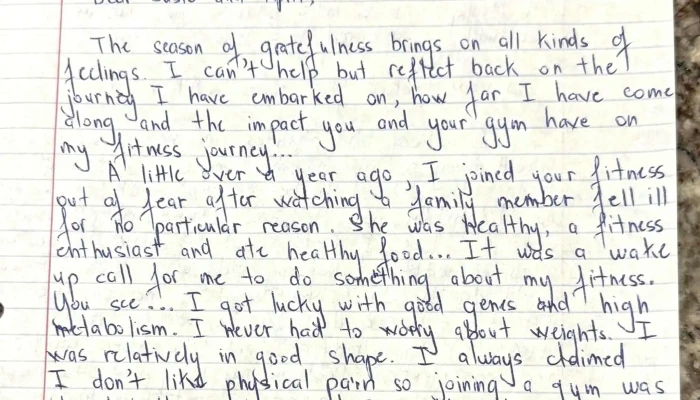 The season of gratefulness brings on all kinds of
feelings. I can't help but reflect back on the
journey I have embarked on, how far I have come
along and the impact you and your gym have on
my fitness journey...
A little over a year ago, I joined your fitness
out of fear after watching a family member fell ill
for no particular reason. She was healthy, a fitness
enthusiast and ate healthy food... It was a wake
up call for me to do something about my fitness.
You see... I got lucky with good genes and high
metabolism. I never had to worry about weights. I
was relatively in good shape. I always claimed
I don't like physical pain so joining a gym was